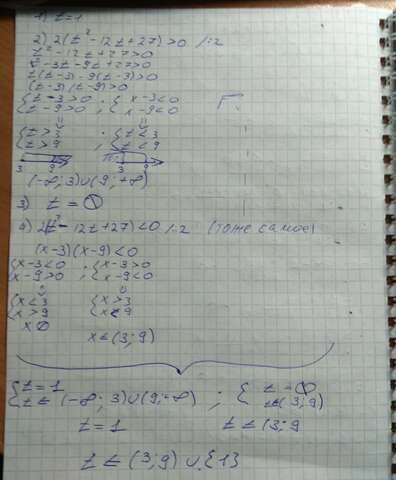 1) t=1
2) 2(t²-12t+27)>0 /:2
t²-12t+27>0
t²-3t-9t+27>0
t(t-3)-9(t-3)>0
(t-3)(t-9)>0
{t-3>0 ; {x-3<0
{t-9>0 ; {x-9<0
{t>3 ; {t<3
{t>9 ; {t<9
3 9 3 9
(-∞;3)∪(9;+∞)
3) t=∅
4) 2(t²-12t+27)<0 /:2 (тоже самое)
(x-3)(x-9)<0
{x-3<0 ; {x-3>0
{x-9>0 ; {x-9<0
{x<3 {x>3
{x>9 {x<9
x∅ x∈(3;9)
{t=1 ; {t=∅
{t∈(-∞;3)∪(9;-∞) ; {t∈(3;9)
t=1 t∈(3;9
t∈(3;9)∪{1}